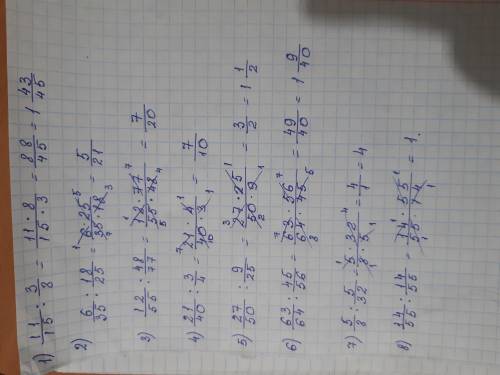 1) 11/15 : 3/8 = 11·8/15·3 = 88/45 = 1 43/45
2) 6/35 : 18/25 = 6·25/35·18 = 5/21
3) 12/55 : 48/77 = 12·77/55·48 = 7/20
4) 21/40 : 3/4 = 21·4/40·3 = 7/10
5) 27/50 : 9/25 = 27·25/50·9 = 3/2 = 1 1/2
6) 63/64 : 45/56 = 63·56/64·45 = 49/40 = 1 9/40
7) 5/8 : 5/32 = 5·32/8·5 = 4/1 = 4
8) 14/55 : 14/55 = 14·55/55·14 = 1.